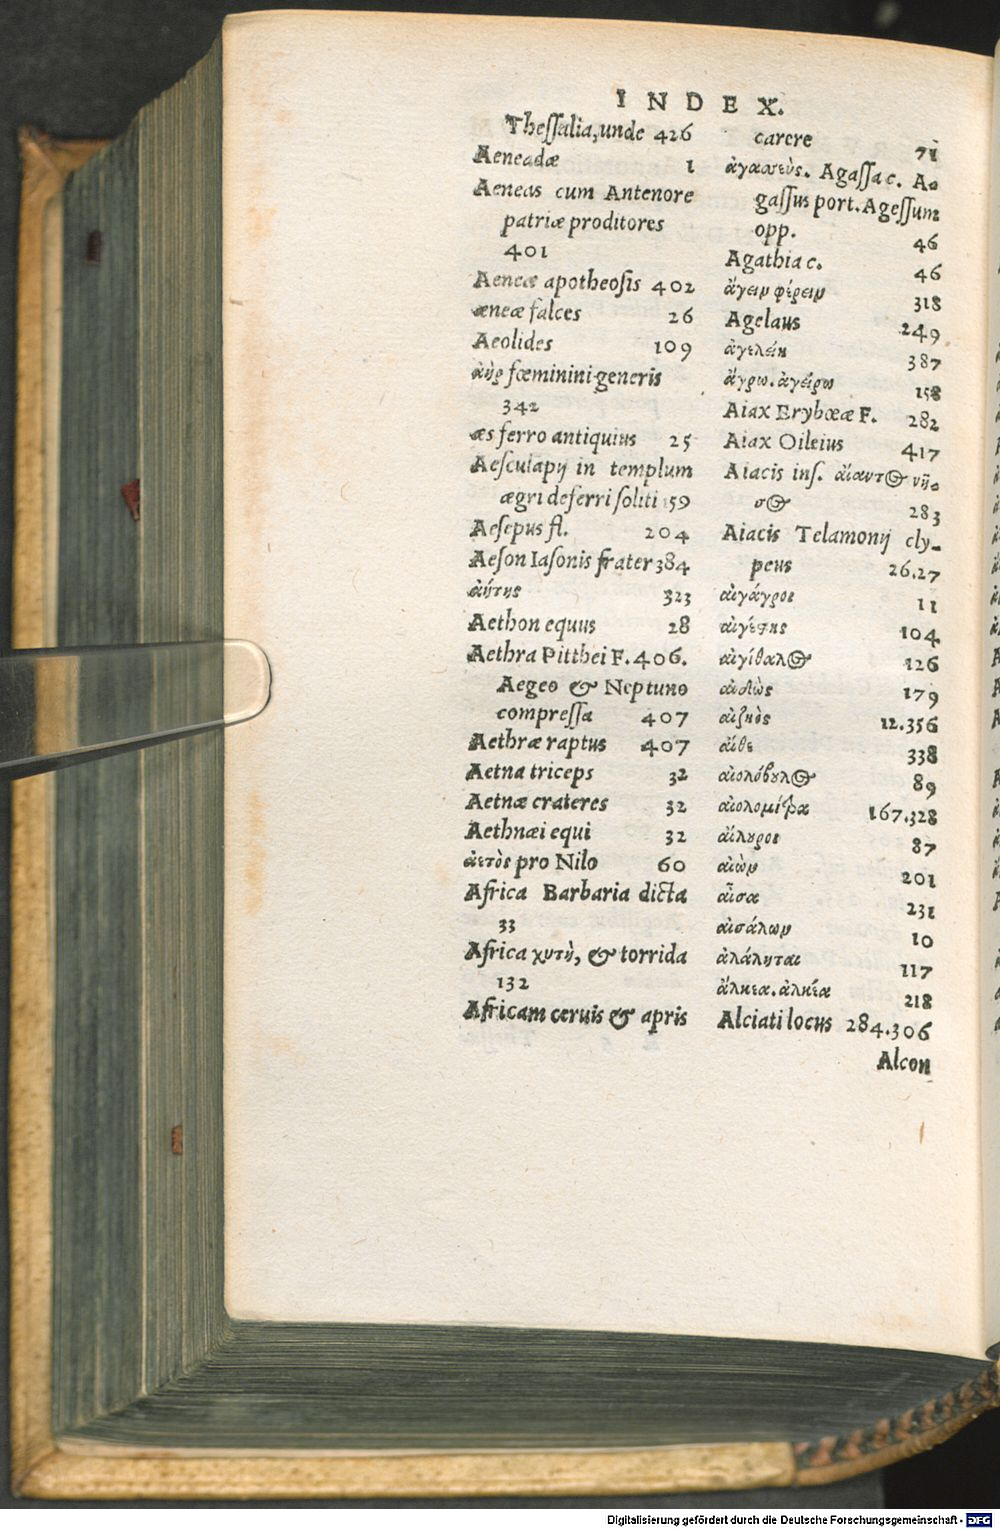 INDEX.
Thessalia, unde 426
Aeneadæ 1
Aeneas cum Antenore
patriæ proditores
401
Aeneæ apotheosis 402
æneæ falces 26
Aeolides 109
ἀὴρ fœminini generis
342
æs ferro antiquius 25
Aesculapij in templum
ægri deferri soliti 159
Aesepus fl. 204
Aeson Iasonis frater 384
ἀήτης 323
Aethon equus 28
Aethra Pitthei F. 406.
Aegeo & Neptuno
compressa 407
Aethræ raptus 407
Aetna triceps 32
Aetnæ crateres 32
Aethnæi equi 32
ἀετὸς pro Nilo 60
Africa Barbaria dicta
33
Africa χυτὴ, & torrida
132
Africam ceruis & apris
carere 71
ἀγασσεὺς. Agassa c. A-
gassus port. Agessum
opp. 46
Agathia c. 46
ἄγειν φέρειν 318
Agelaus 249
ἀγελείη 387
ἄγρω. ἀγείρω 158
Aiax Erybœæ F. 282
Aiax Oileius 417
Aiacis ins. αἴαντος νῆ-
σος 283
Aiacis Telamonij cly-
peus 26.27
αἰγάγροι 11
αἰγίθαλος 126
αἰδὼς 179
αἰζηὸς 12.356
αἴθε 338
αἰολόβουλος 89
αἰολομίτρα 167.328
αἴλουρος 87
αἰὼν 201
αἶσα 231
αἰσάλων 10
ἀλάληται 117
ἄλκεα. ἀλκέα 218
Alciati locus 284.306
Alcon
Digitalisierung gefördert durch die Deutsche Forschungsgemeinschaft - DFG